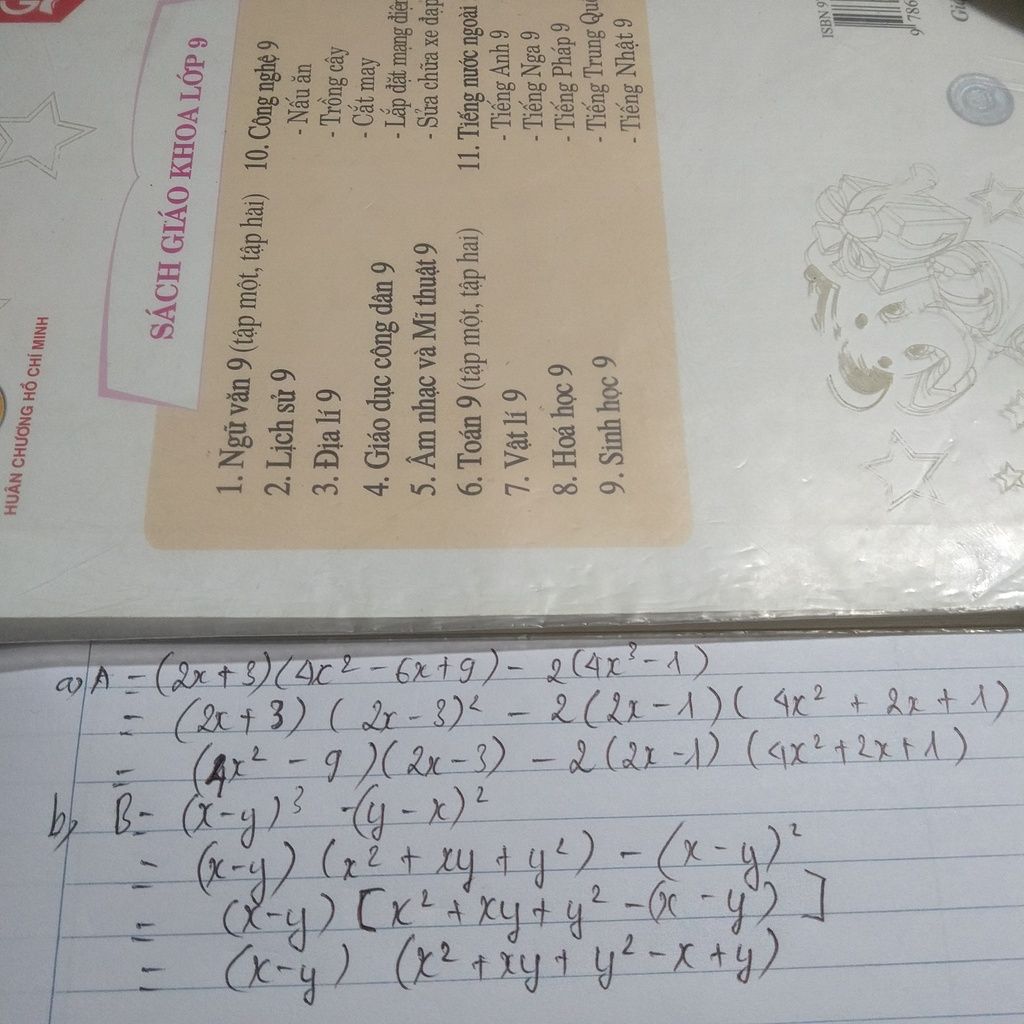 HUÂN CHƯƠNG HỒ CHÍ MINH
SÁCH GIÁO KHOA LỚP 9
1. Ngữ văn 9 (tập một, tập hai)
2. Lịch sử 9
3. Địa lí 9
4. Giáo dục công dân 9
5. Âm nhạc và Mĩ thuật 9
6. Toán 9 (tập một, tập hai)
7. Vật lí 9
8. Hoá học 9
9. Sinh học 9
10. Công nghệ 9
- Nấu ăn
- Trồng cây
- Cắt may
- Lắp đặt mạng điện
- Sửa chữa xe đạp
11. Tiếng nước ngoài
- Tiếng Anh 9
- Tiếng Nga 9
- Tiếng Pháp 9
- Tiếng Trung
- Tiếng Nhật 9
ISBN
a) A = (2x+3)(4x² - 6x+9) - 2(4x³ - 1)
= (2x+3) (2x-3)² - 2(2x-1)(4x² + 2x + 1)
= (4x² - 9)(2x-3) - 2(2x-1) (4x²+2x+1)
b, B= (x-y)³ -(y-x)²
= (x-y) (x² + xy + y²) - (x-y)²
= (x-y) [x² + xy + y² - (x - y)]
= (x-y) (x² + xy + y² - x + y)